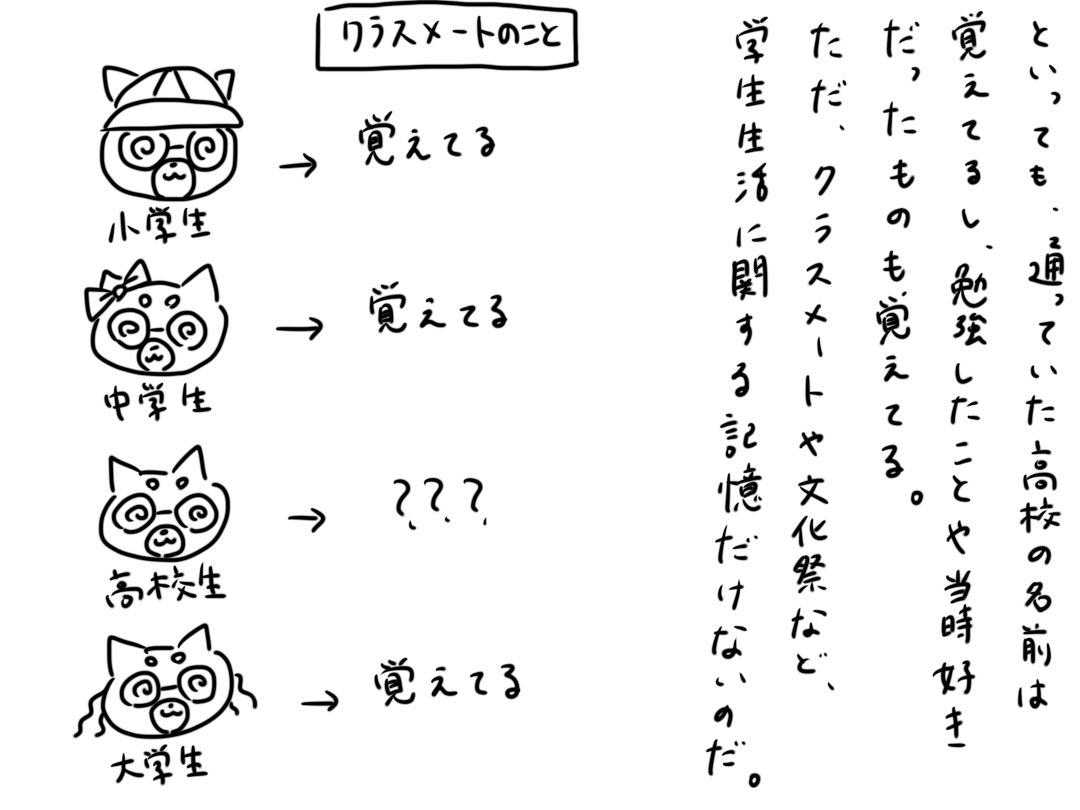 といっても、通っていた高校の名前は
覚えてるし、勉強したことや当時好き
だったものも覚えてる。
ただ、クラスメートや文化祭など、
学生生活に関する記憶だけないのだ。
クラスメートのこと
小学生
→ 覚えてる
中学生
→ 覚えてる
高校生
→ ???
大学生
→ 覚えてる